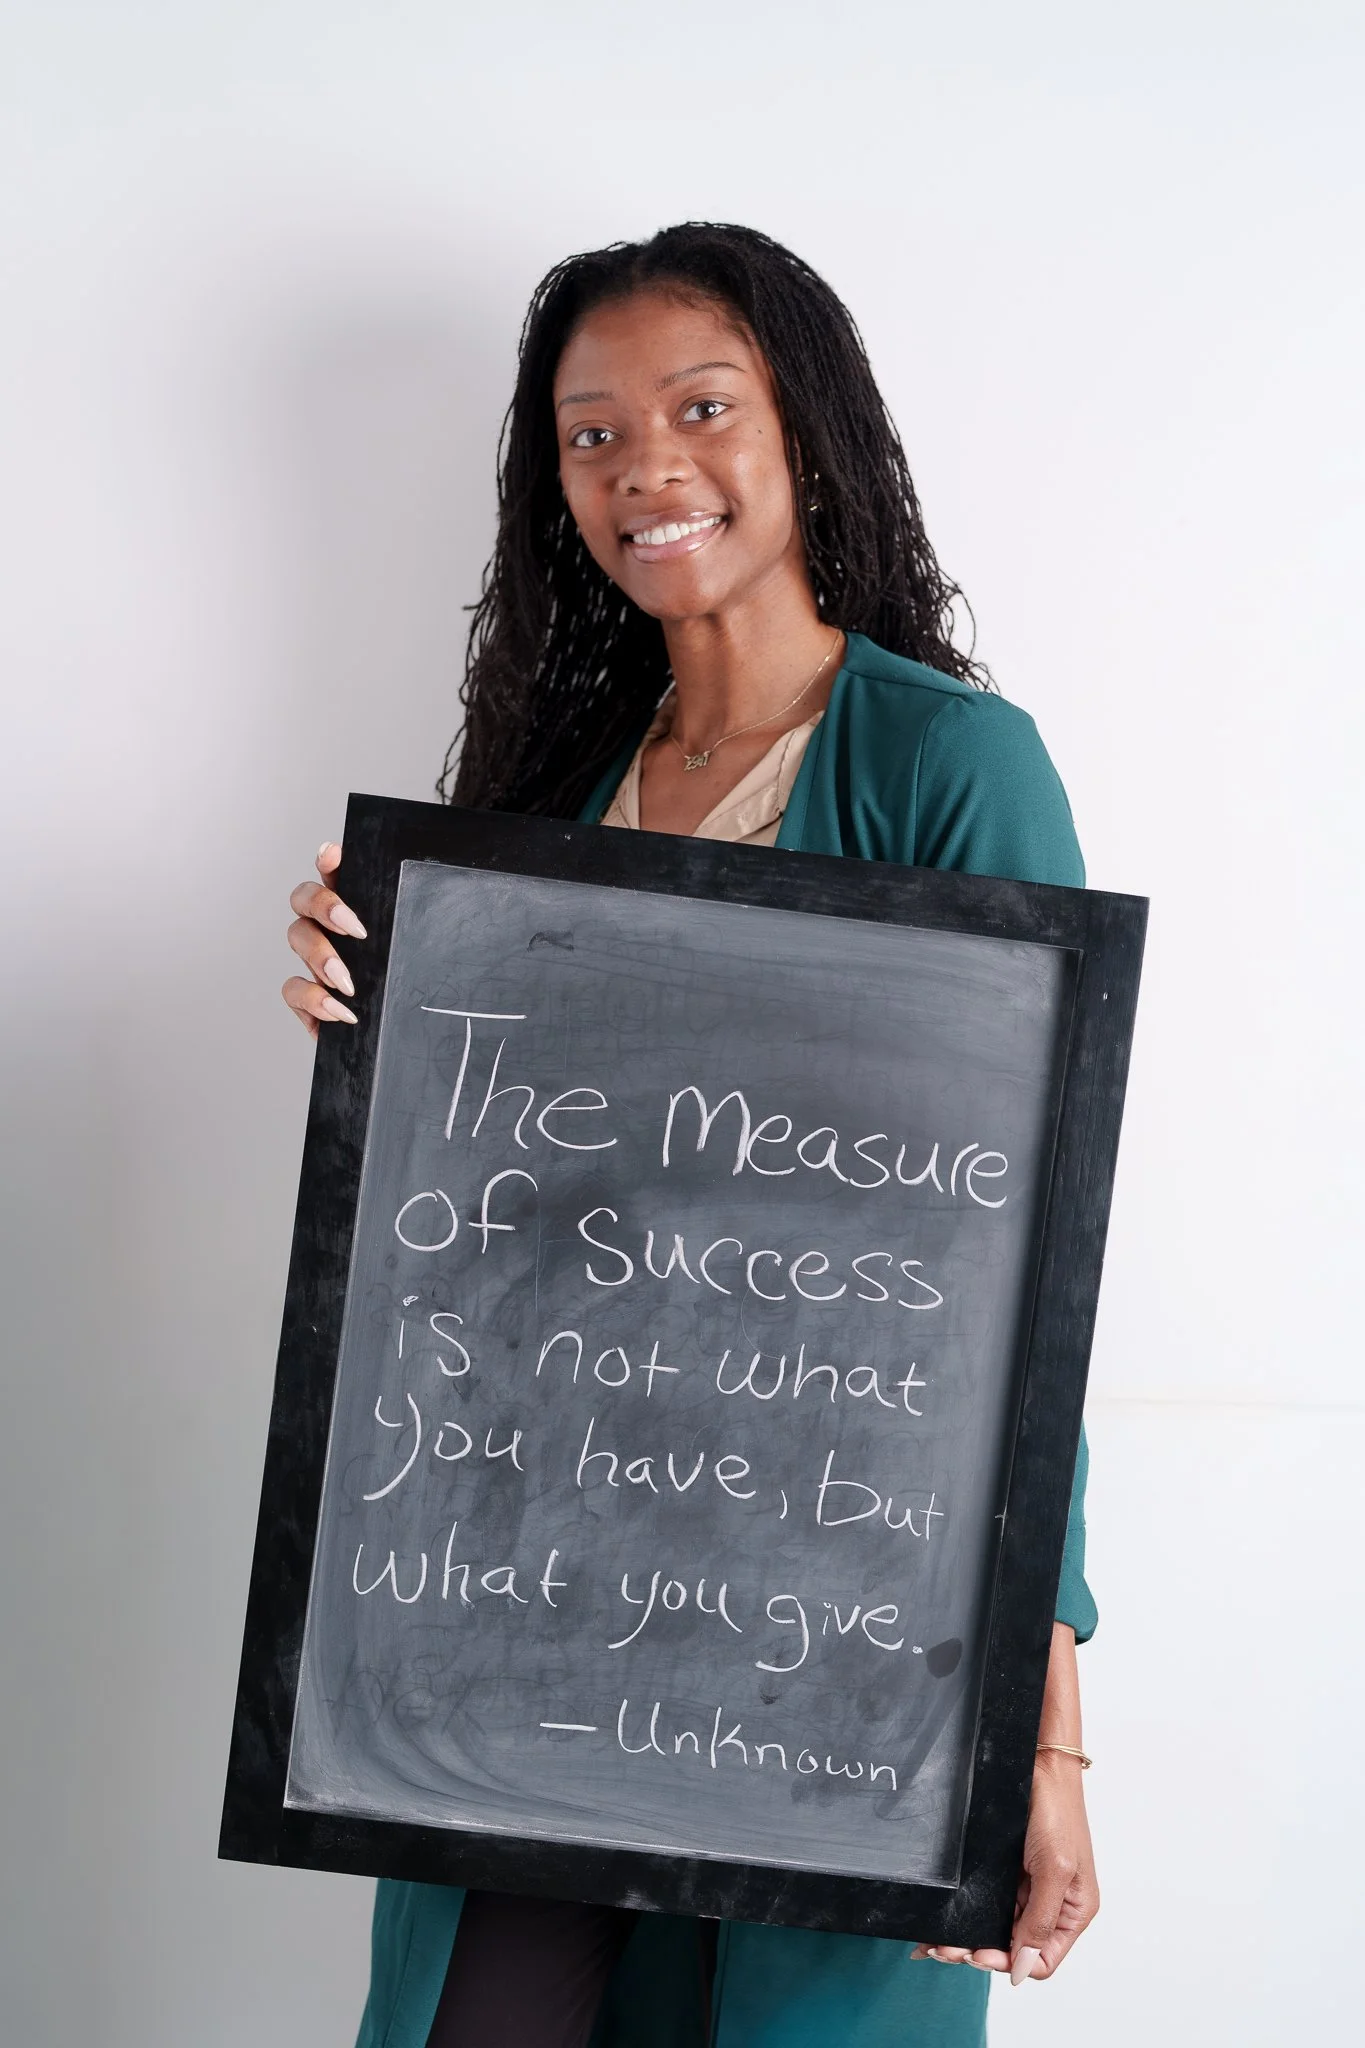 The Measure
of Success
is not what
you have, but
what you give.
- Unknown